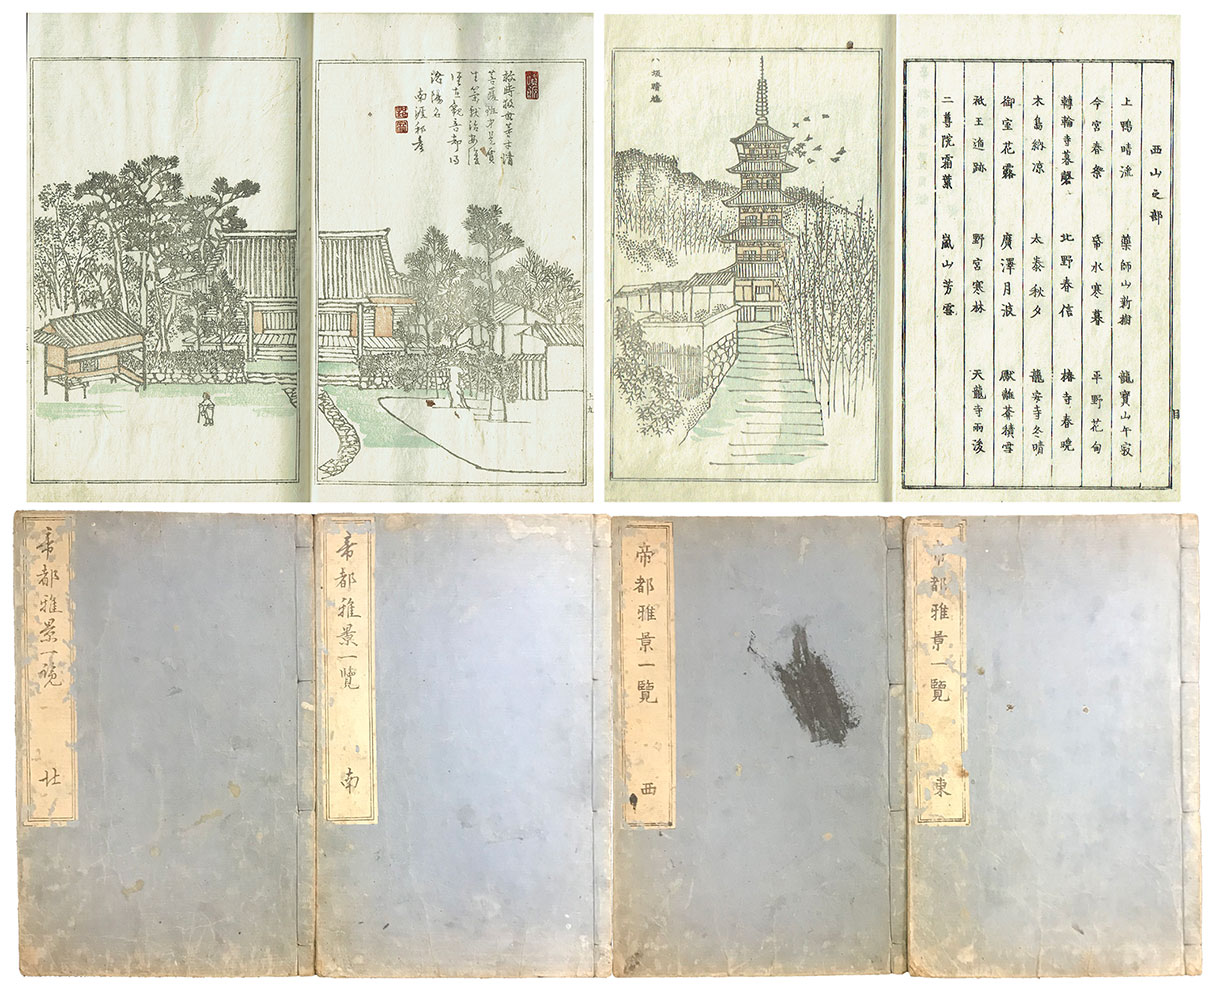 洛陽名
八坂晴
西山之部
上鴨晴流 藥師山新樹 龍寶山午寂
今宮春祭 水寒暮 平野花甸
轉輪寺暮磬 北野春信 椿寺春晩
木島納凉 太秦秋夕 龍安寺冬晴
御室花霧 廣澤月波 厭離菴積雪
祇王遺跡 野宮寒林 天龍寺雨後
二尊院霜葉 嵐山芳雲
帝都雅景一覧 北
帝都雅景一覽 南
帝都雅景一覽 西
帝都雅景一覽 東